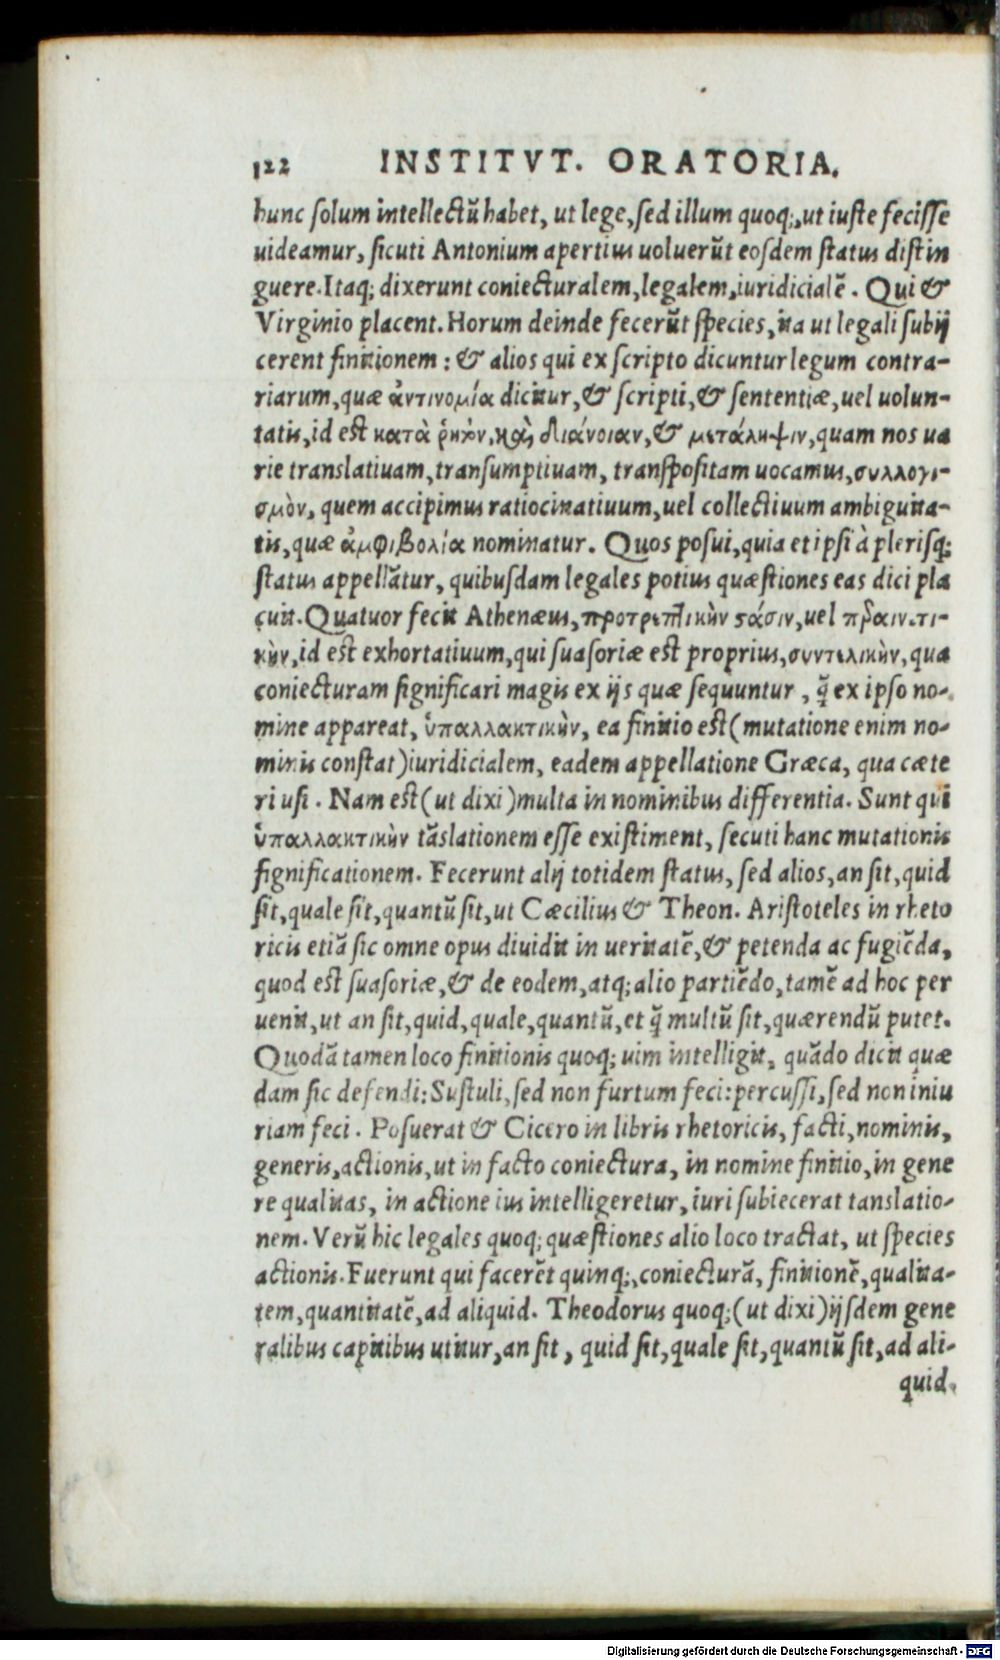 122 INSTITVT. ORATORIA.
hunc solum intellectũ habet, ut lege, sed illum quoq;, ut iuste fecisse
uideamur, sicuti Antonium apertius uoluerũt eosdem status distin
guere. Itaq; dixerunt coniecturalem, legalem, iuridicialẽ. Qui &
Virginio placent. Horum deinde fecerũt species, ita ut legali subij
cerent finitionem: & alios qui ex scripto dicuntur legum contra-
riarum, quæ ἀντινομία dicitur, & scripti, & sententiæ, uel uolun-
tatis, id est κατὰ ῥητὸν, καὶ διάνοιαν, & μετάληψιν, quam nos ua
rie translatiuam, transumptiuam, transpositam uocamus, συλλογι-
σμὸν, quem accipimus ratiocinatiuum, uel collectiuum ambiguita-
tis, quæ ἀμφιβολία nominatur. Quos posui, quia et ipsi à plerisq;
status appellãtur, quibusdam legales potius quæstiones eas dici pla
cuit. Quatuor fecit Athenæus, προτρεπτικὴν στάσιν, uel παραινετι-
κὴν, id est exhortatiuum, qui suasoriæ est proprius, συντελικὴν, qua
coniecturam significari magis ex ijs quæ sequuntur, q̃ ex ipso no-
mine appareat, ὑπαλλακτικὴν, ea finitio est (mutatione enim no-
minis constat) iuridicialem, eadem appellatione Græca, qua cæte
ri usi. Nam est (ut dixi) multa in nominibus differentia. Sunt qui
ὑπαλλακτικὴν tãslationem esse existiment, secuti hanc mutationis
significationem. Fecerunt alij totidem status, sed alios, an sit, quid
sit, quale sit, quantũ sit, ut Cæcilius & Theon. Aristoteles in rheto
ricis etiã sic omne opus diuidit in ueritatẽ, & petenda ac fugiẽda,
quod est suasoriæ, & de eodem, atq; alio partiẽdo, tamẽ ad hoc per
uenit, ut an sit, quid, quale, quantũ, et q̃ multũ sit, quærendũ putet.
Quodã tamen loco finitionis quoq; uim intelligit, quãdo dicit quæ
dam sic defendi: Sustuli, sed non furtum feci: percussi, sed non iniu
riam feci. Posuerat & Cicero in libris rhetoricis, facti, nominis,
generis, actionis, ut in facto coniectura, in nomine finitio, in gene
re qualitas, in actione ius intelligeretur, iuri subiecerat tanslatio-
nem. Verũ hic legales quoq; quæstiones alio loco tractat, ut species
actionis. Fuerunt qui facerẽt quinq;, coniecturã, finitionẽ, qualita-
tem, quantitatẽ, ad aliquid. Theodorus quoq; (ut dixi) ijsdem gene
ralibus capitibus utitur, an sit, quid sit, quale sit, quantũ sit, ad ali-
quid.
Digitalisierung gefördert durch die Deutsche Forschungsgemeinschaft - DFG